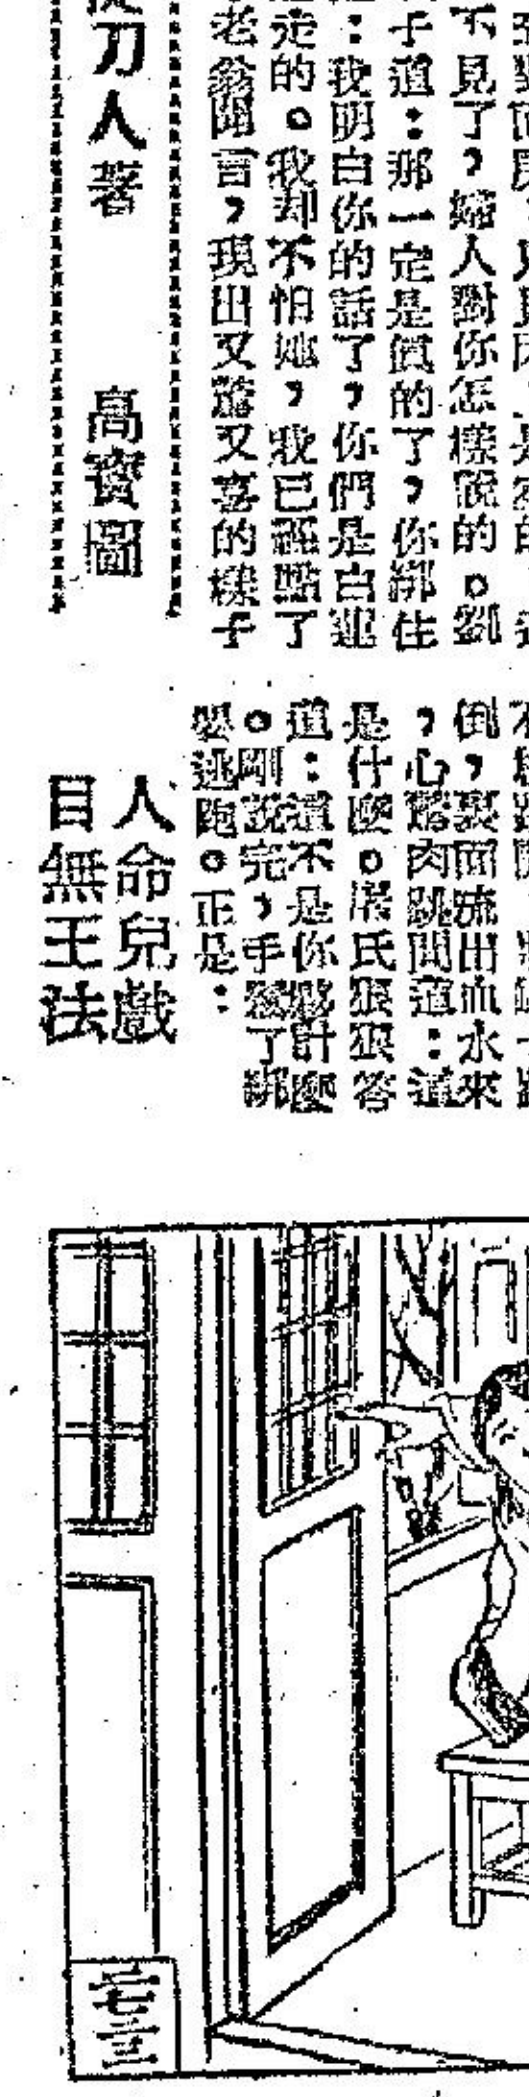 不見了，婦人對你怎樣說的。劉
子道：那一定是真的了，你綁住
：我明白你的話了，你們是白蓮
走的。我却不怕她，我已經點了
老翁聞言，現出又驚又喜的樣子
刀人著　高寶圖
倒，裏面流出血水來
，心驚肉跳問道：這
是什麼。氏狠狠答
道：這不是你夥計麼
。剛說完，手鬆了綁
要逃跑。正是：
人命兒戲
目無王法